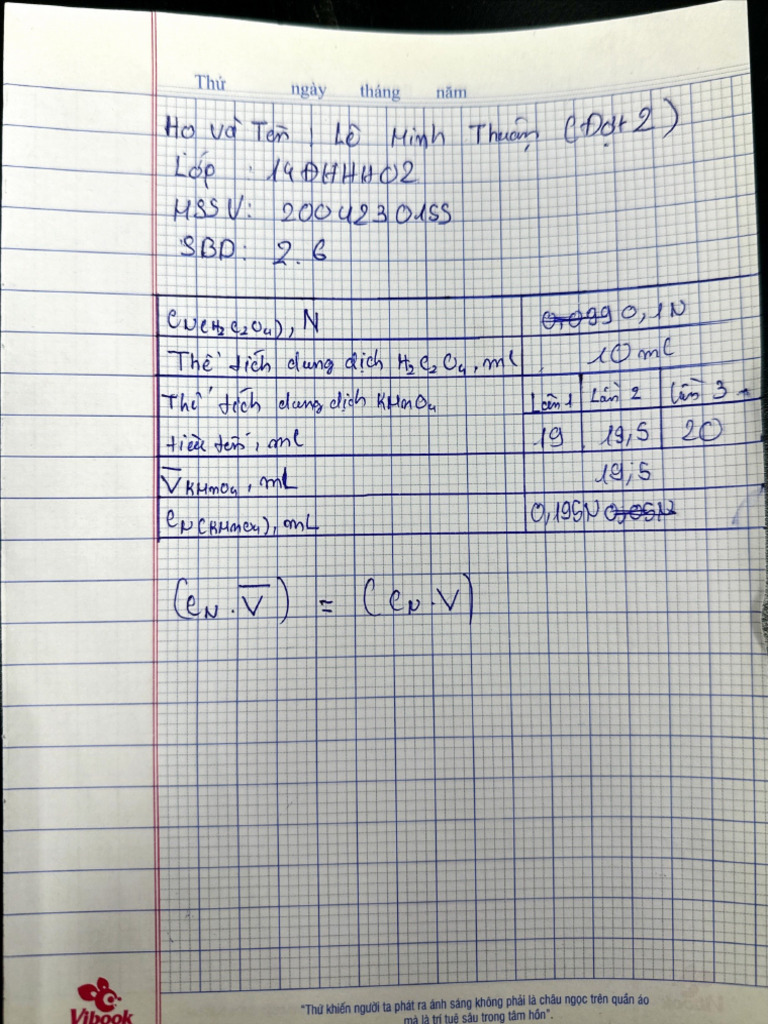 Thứ ngày tháng năm
Họ và Tên : Lê Minh Thuận (Đợt 2)
Lớp : 14ĐHHH02
MSSV: 2004230155
SBD: 2.6
CN(H2C2O4), N 0,099 0,1N
Thể tích dung dịch H2C2O4, ml 10 ml
Thể tích dung dịch KMnO4 Lần 1 Lần 2 Lần 3
tiêu tốn, ml 19 19,5 20
V̅KMnO4, ml 19,5
CN(KMnO4), mL 0,195N 0,05N
(CN . V̅) = (CN . V)
"Thứ khiến người ta phát ra ánh sáng không phải là châu ngọc trên quần áo
mà là trí tuệ sâu trong tâm hồn".
Vibook